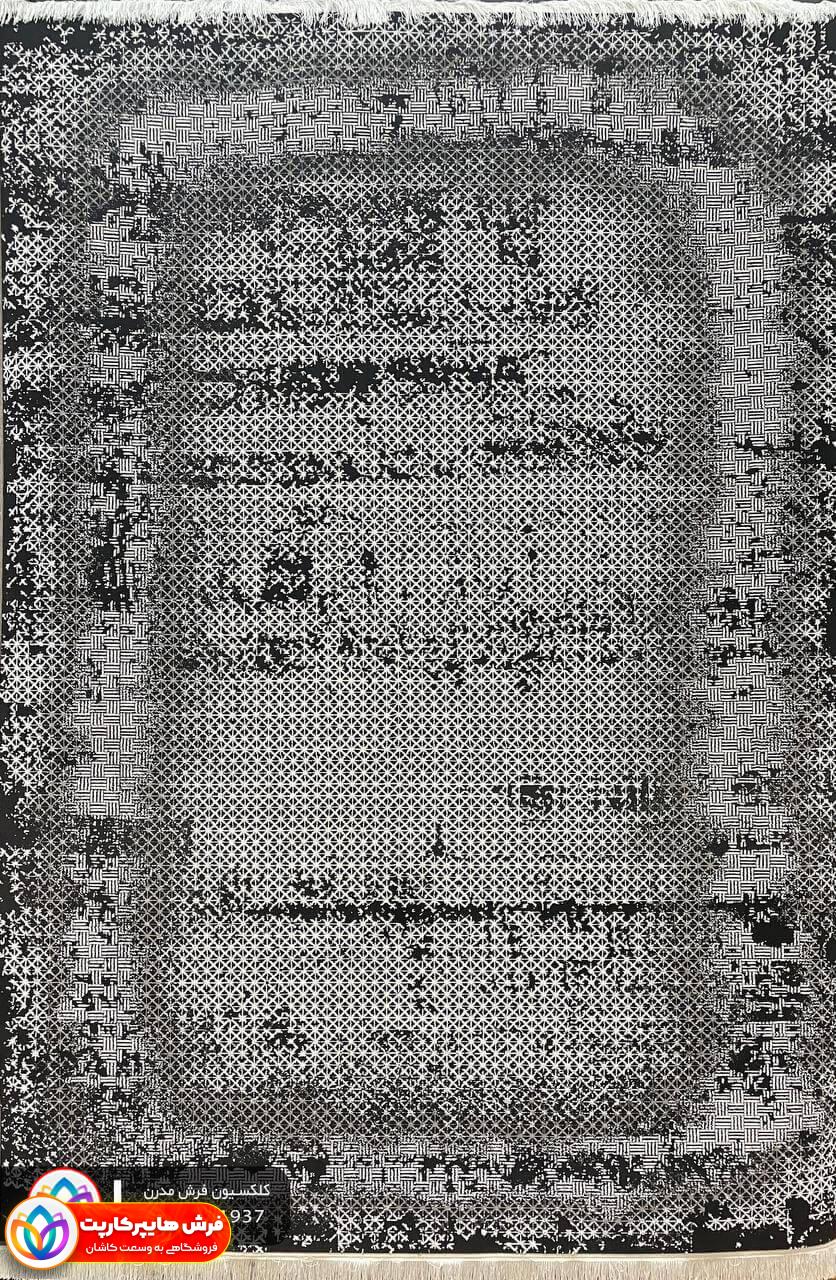 کلکسیون فرش مدرن
937
فرش هایپرکارپت
فروشگاهی به وسعت کاشان